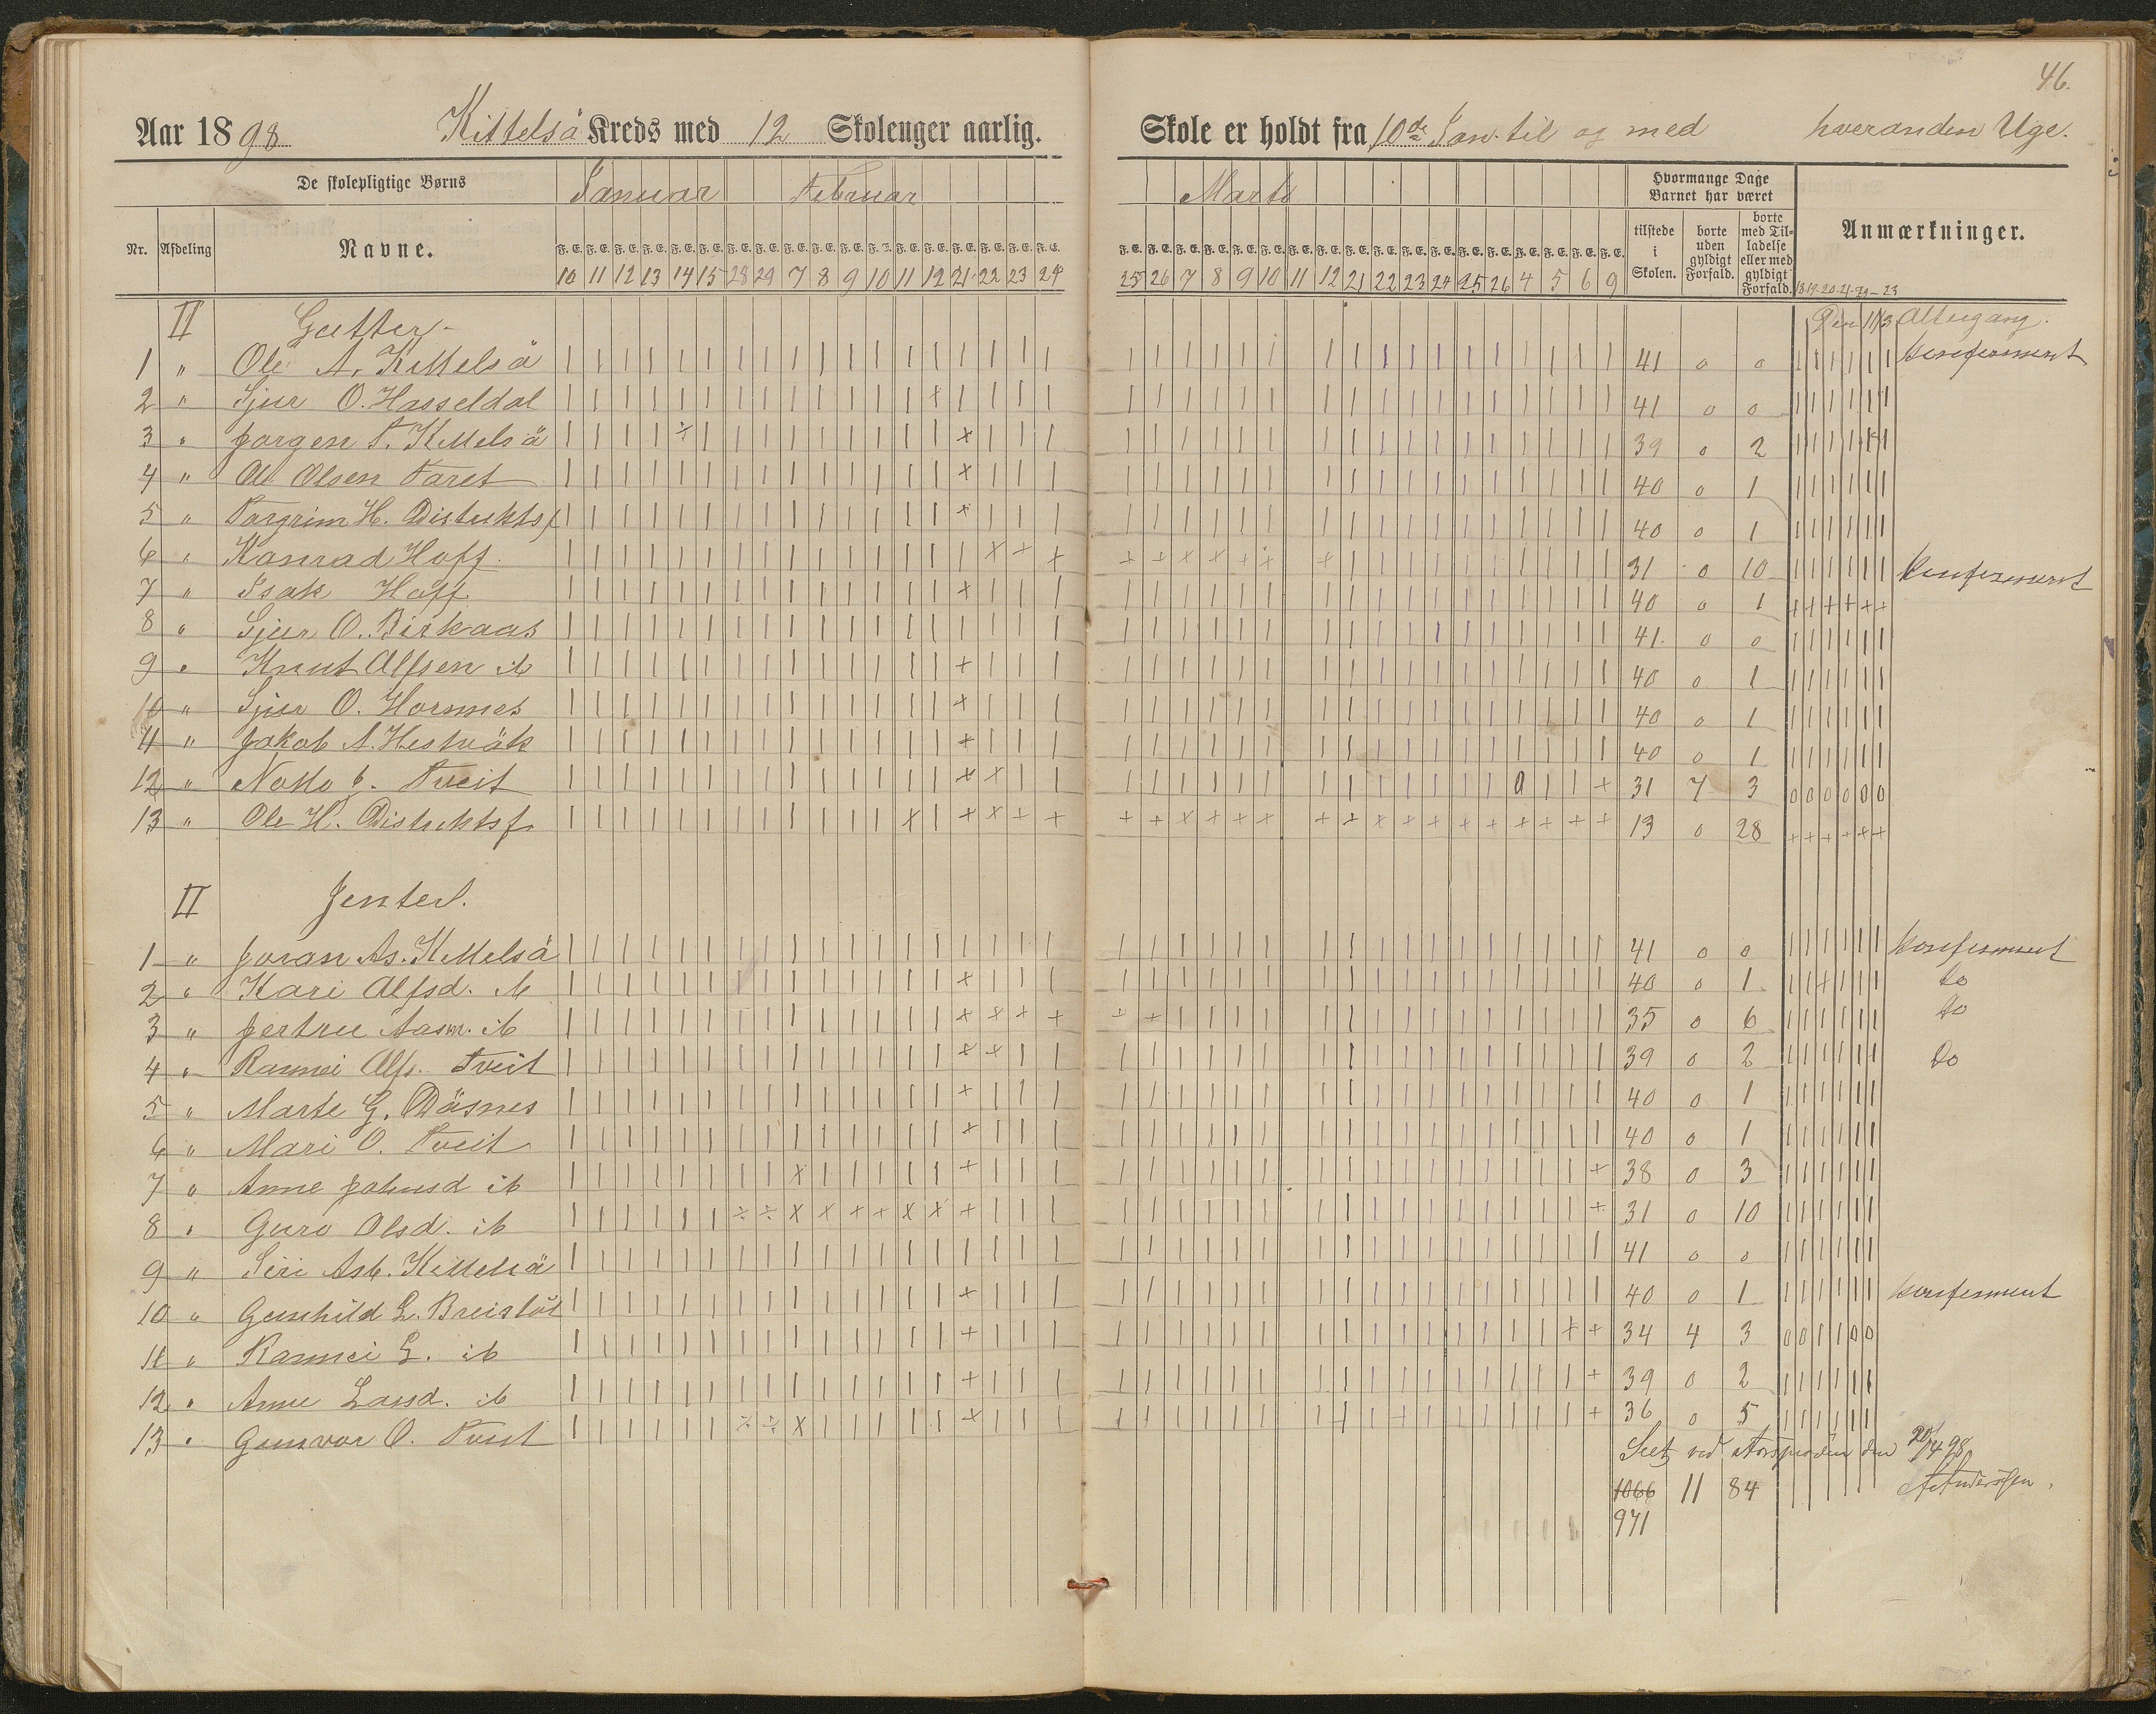 46.
Aar 1898 Kittelså Kreds med 12 Skoleuger aarlig. Skole er holdt fra 10de Jan. til og med hveranden Uge.
De skolepligtige Børns Januar Februar Marts Hvormange Dage Barnet har været
Nr. Afdeling Navne. F. E. F. E. F. E. F. E. F. E. F. E. F. E. F. E. F. E. F. E. F. E. F. E. F. E. F. E. F. E. F. E. F. E. F. E. tilstede i Skolen. borte uden gyldigt Forfald. borte med Tilladelse eller med gyldigt Forfald. Anmærkninger.
10 11 12 13 14 15 28 29 7 8 9 10 11 12 21 22 23 24 25 26 7 8 9 10 11 12 21 22 23 24 25 26 4 5 6 9
II Gutter Den 11/3 Altergang.
1 " Ole A. Kittelså 41 0 0 konfirmert
2 " Sjur O. Hasseldal 41 0 0
3 " Jørgen T. Kittelså 39 0 2
4 " Ole Olsen Taret 40 0 1
5 " Targrim H. Distriktsf 40 0 1
6 " Konrad Hoff. 31 0 10 konfirmert
7 " Isak Hoff 40 0 1
8 " Sjur O. Birkaas 41 0 0
9 " Knut Alfsen ib 40 0 1
10 " Sjur O. Hornnes 40 0 1
11 " Jakob A. Hestvåk 40 0 1
12 " Notto J. Tveit 31 7 3 0 0 0 0 0 0
13 " Ole H. Distriktsf 13 0 28
II Jenter.
1 " Joran As. Kittelså 41 0 0 konfirmert
2 " Kari Alfsd. ib 40 0 1 do
3 " Jertru Aasm. ib 35 0 6 do
4 " Rannei Alfs. Tveit 39 0 2 Do
5 " Marte G. Dåsnes 40 0 1
6 " Mari O. Tveit 40 0 1
7 " Anne Johnsd ib 38 0 3
8 " Guro Olsd. ib 31 0 10
9 " Siri Asb. Kittelså 41 0 0
10 " Gunhild L. Breistøl 40 0 1 konfirmert
11 " Rannei L. ib 34 4 3 0 0 1 1 0 0
12 " Anne Larsd. ib 39 0 2
13 " Gunvor O. Tveit 36 0 5
Seet ved Aarsprøven den 20/4 98
1066 11 84 A. Anderssen.
971